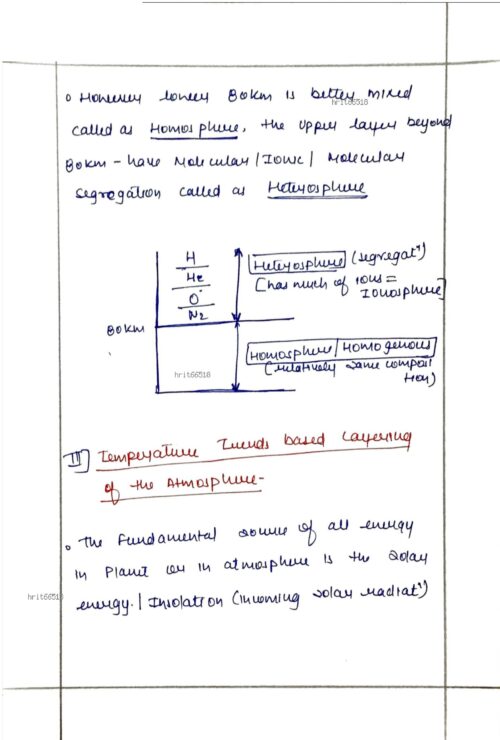 o However lower 80km is better mixed
hrit66518
called as Homosphere, the upper layer beyond
80km - have Molecular / Ionic / Molecular
segregation called as Heterosphere
H
He
O
N2
Heterosphere (segregatⁿ)
[has much of ions =
Ionosphere]
80km
Homosphere / Homogenous
(relatively same composi
tion)
hrit66518
III] Temperature Trends based Layering
of the Atmosphere-
o The fundamental source of all energy
in Planet or in atmosphere is the solar
hrit66518
energy. / Insolation (incoming solar radiatⁿ)